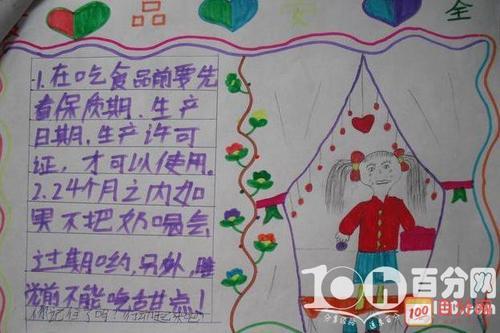 品 安 全
1.在吃食品前要先
看保质期.生产
日期.生产许可
证,才可以使用.
2.24个月之内如
果不把奶喝会
过期哟,另外,睡
觉前不能吃甜点!
你记住了吗?
100分
百分网
100